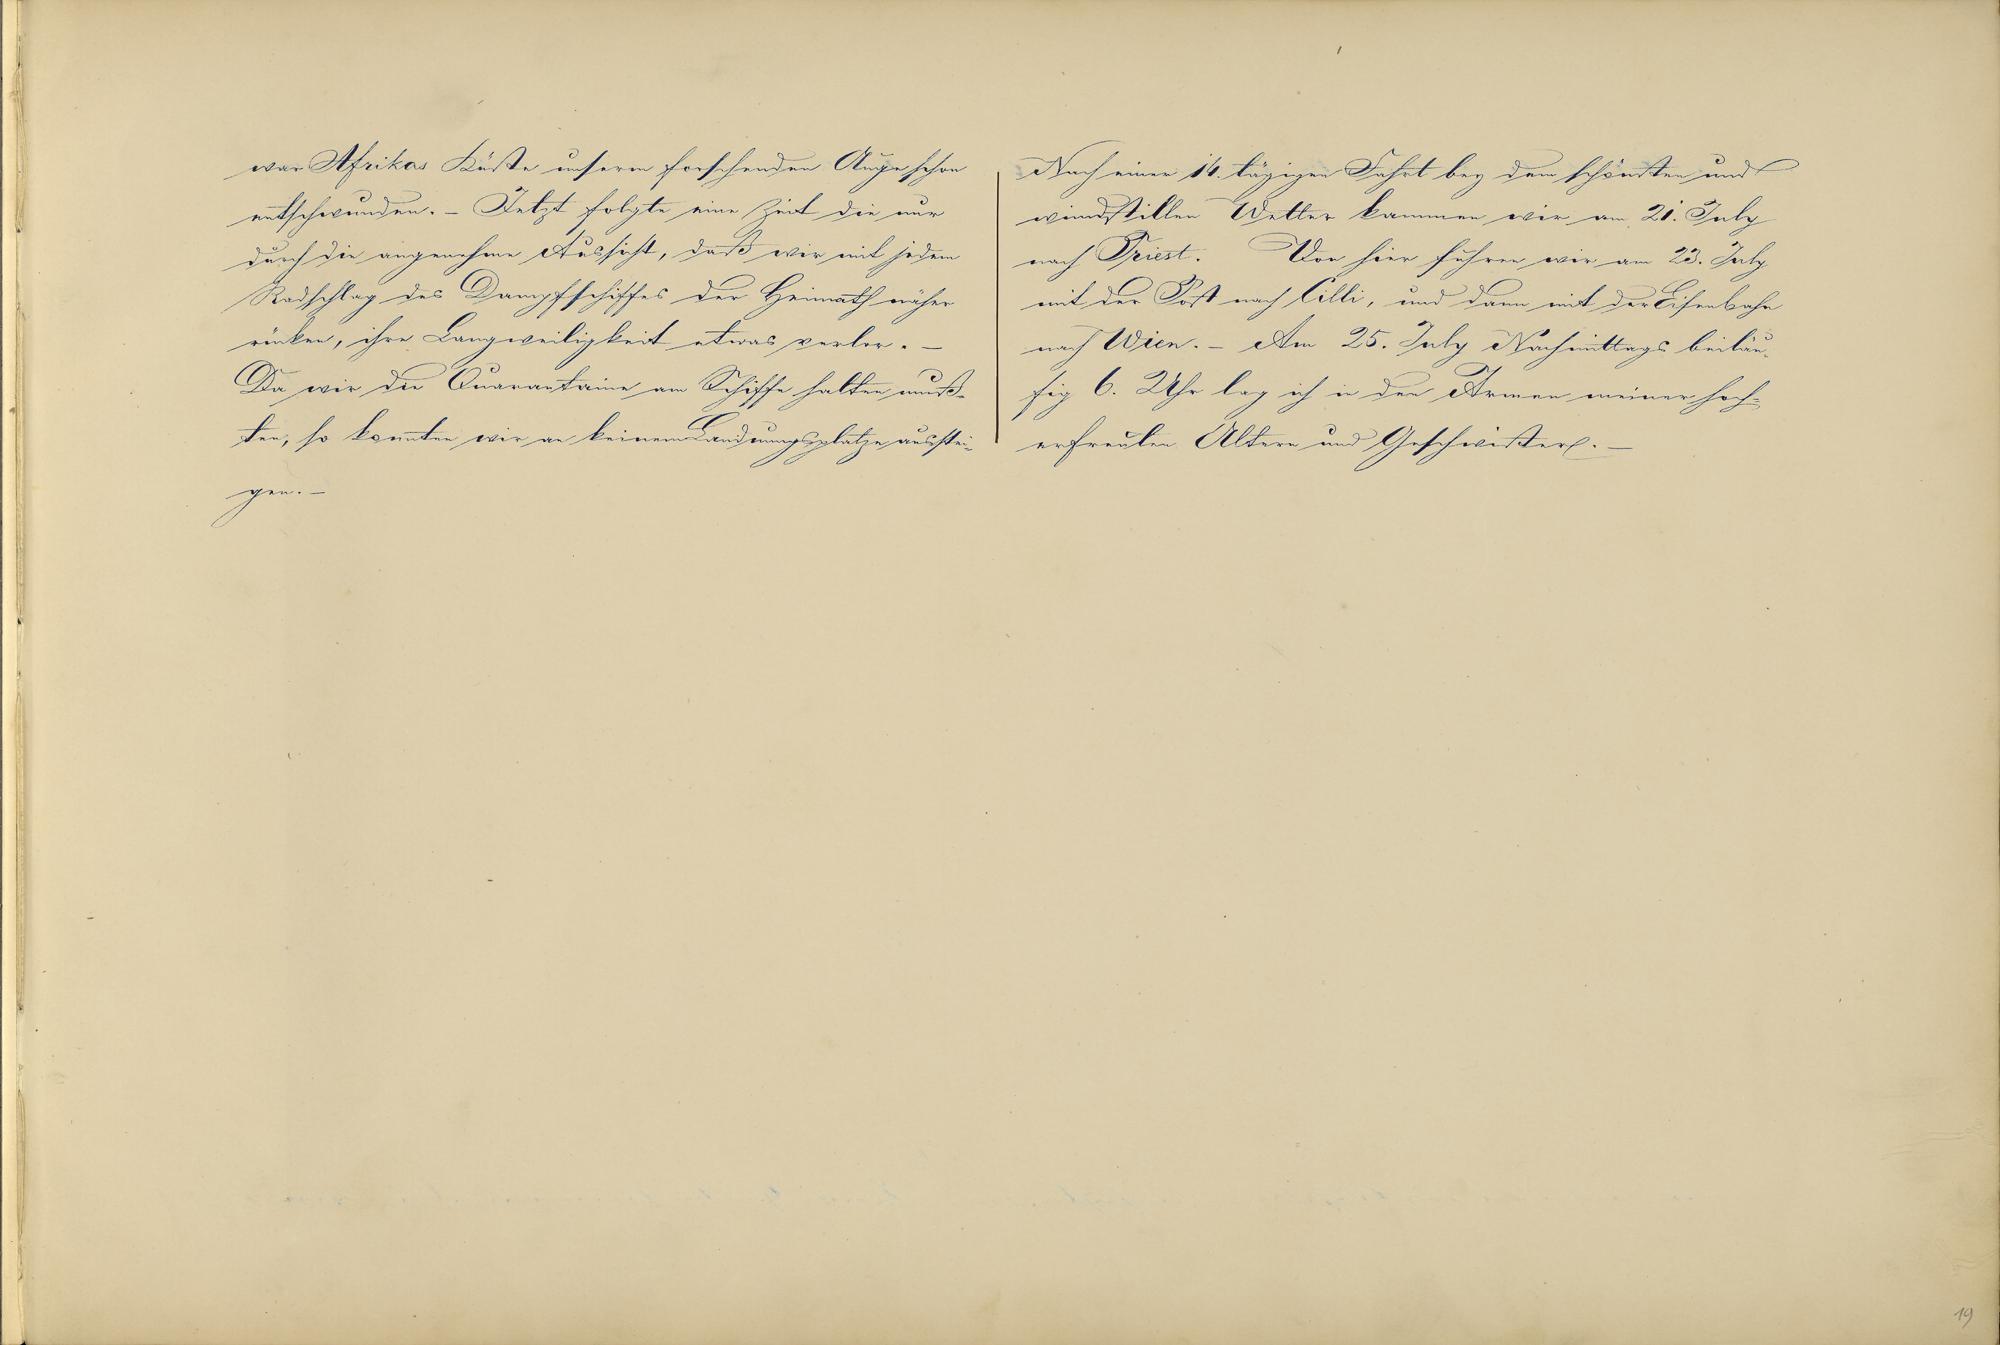 war Afrikas Küste unserm forschenden Auge schon
entschwunden. – Jetzt folgte eine Zeit die nur
durch die angenehme Aussicht, daß wir mit jedem
Radschlag des Dampfschiffes der Heimath näher
rücken, ihre Langweiligkeit etwas verlor. –
Da wir die Quarantaine am Schiffe halten muß-
ten, so konnten wir an keinem Landungsplatze ausstei-
gen. –
Nach einer 14. tägigen Fahrt bey dem schönsten und
windstillen Wetter kammen wir am 21. July
nach Triest. Von hier fuhren wir am 23. July
mit der Post nach Cilli, und dann mit der Eisenbahn
nach Wien. – Am 25. July Nachmittags beiläu-
fig 6. Uhr lag ich in den Armen meiner hoch-
erfreuten Ältern und Geschwister. –
19